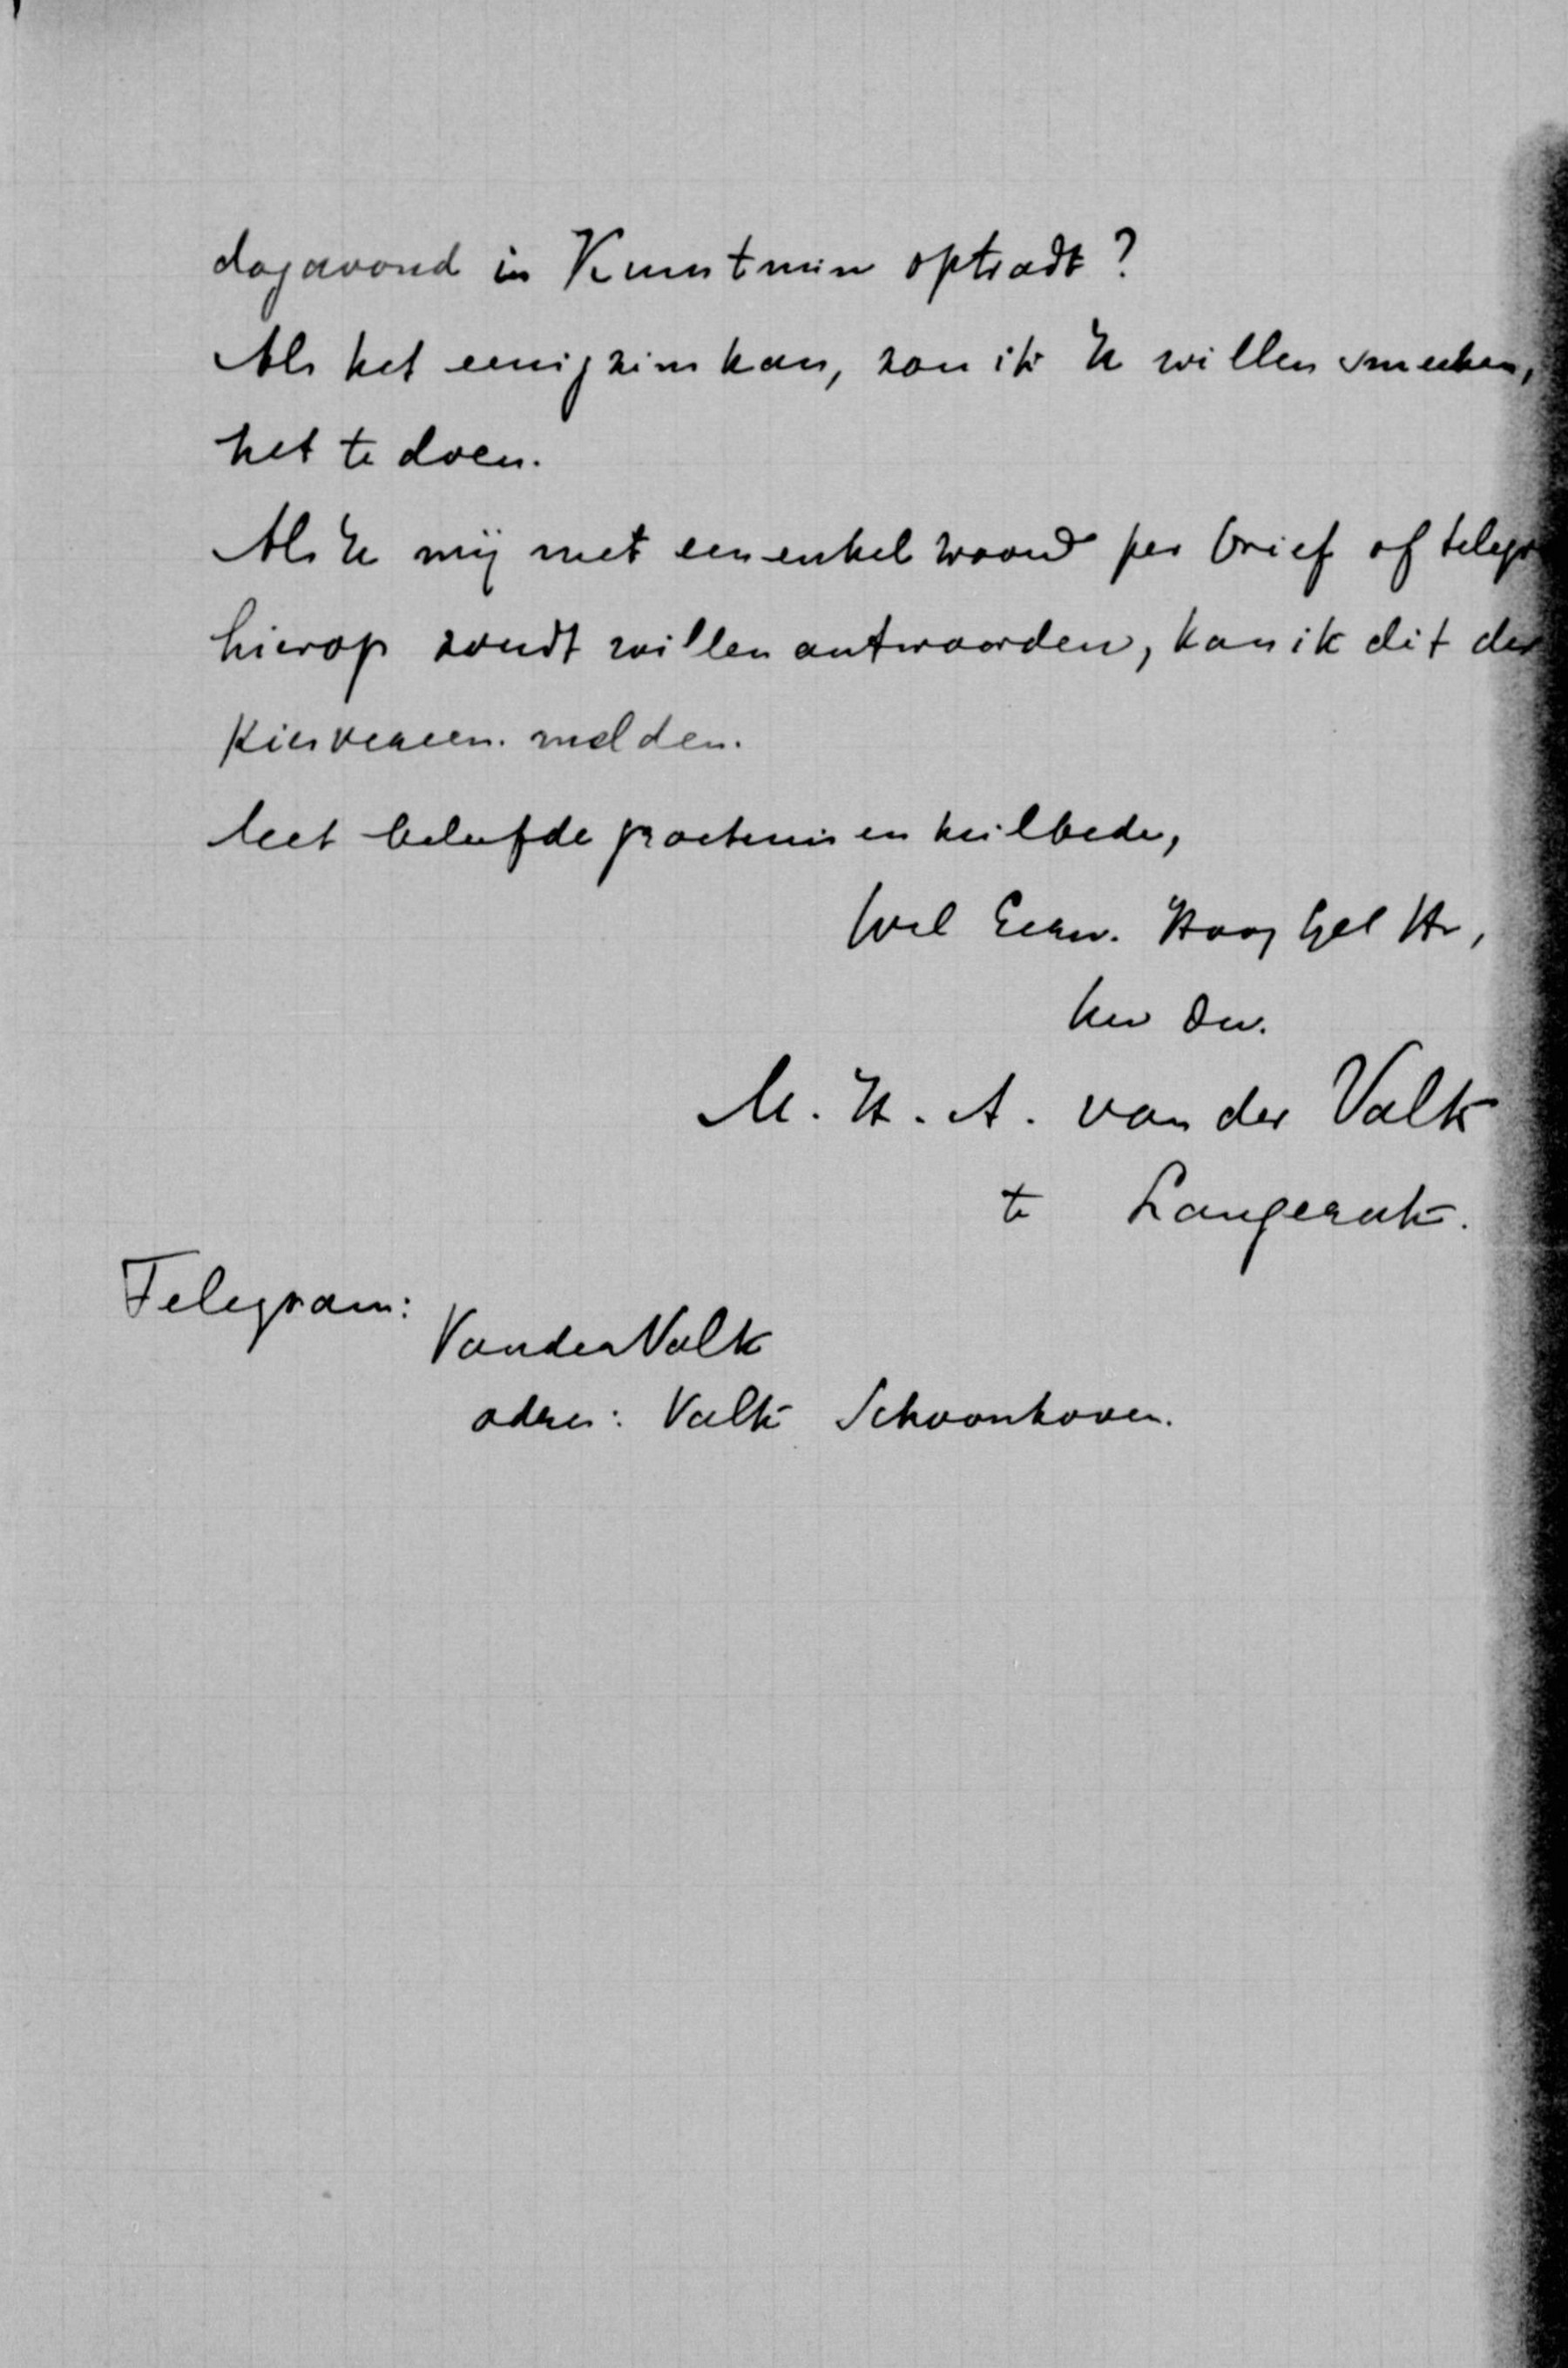 dagavond in Kunstmin optradt?
Als het eenigzins kan, zou ik U willen smeeken,
het te doen.
Als U mij met een enkel woord per brief of telegr
hierop zoudt willen antwoorden, kan ik dit der
Kiesvereen. melden.
Met beleefde groetenis en heilbede,
Wel Eerw. HoogGel Hr,
Uw Dw.
M. H. A. van der Valk
te Langerak.
Telegram:
VanderValk
adres: Valk Schoonhoven.